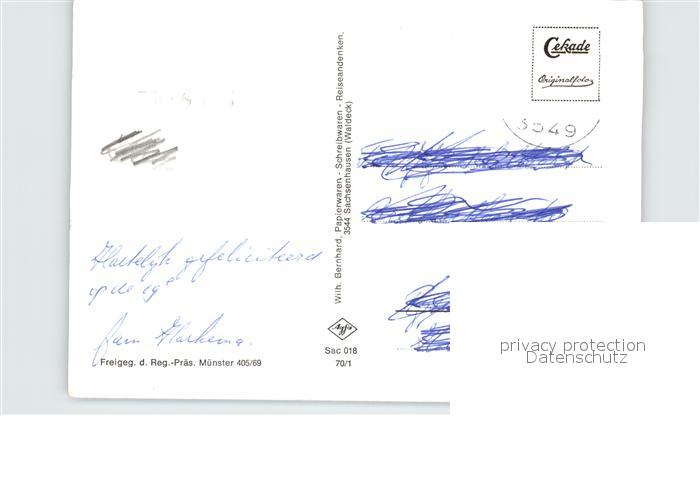 Cekade
Originalfoto
3549
Wilh. Bernhard, Papierwaren - Schreibwaren - Reiseandenken,
3544 Sachsenhausen (Waldeck)
Hartelijk gefeliciteerd
op de 19e
fam Harkema.
Agfa
Freigeg. d. Reg.-Präs. Münster 405/69
Sac 018
70/1
privacy protection
Datenschutz